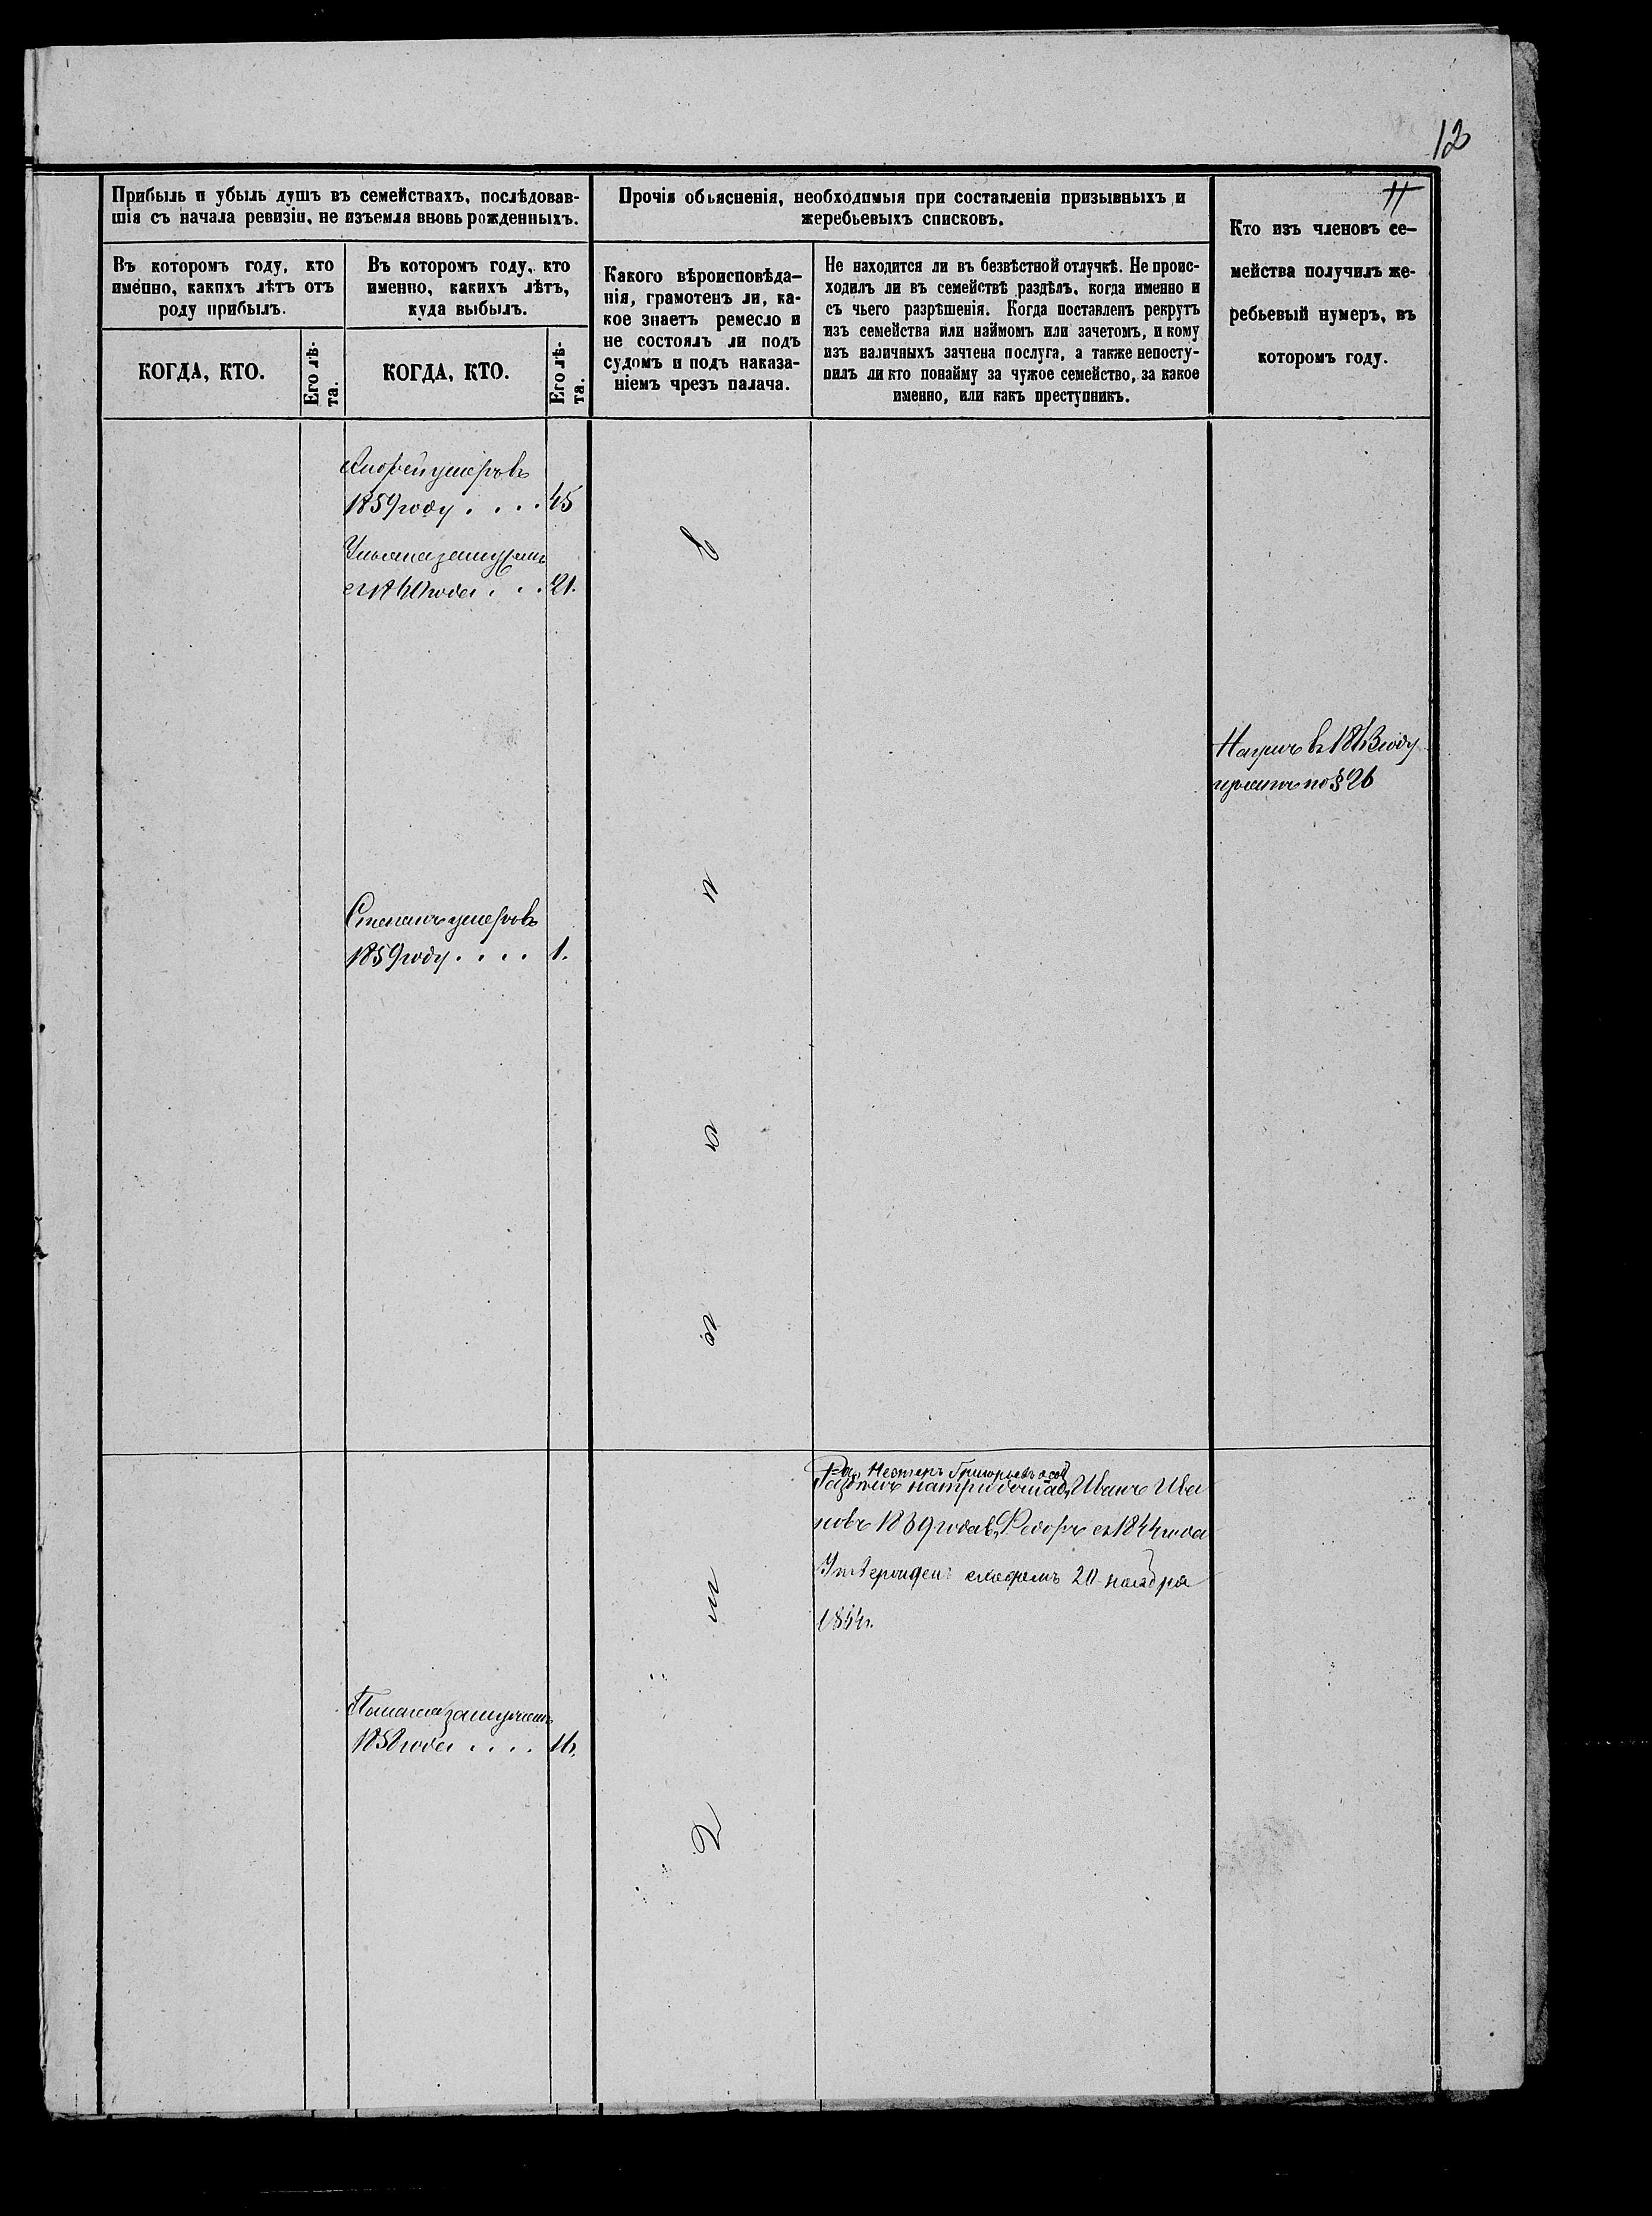 12
11
Прибыль и убыль душъ въ семействахъ, послѣдовав-
шія съ начала ревизіи, не изъемля вновь рожденныхъ.
Прочія объясненія, необходимыя при составленіи призывныхъ и
жеребьевыхъ списковъ.
Кто изъ членовъ се-
мейства получилъ же-
ребьевый нумеръ, въ
которомъ году.
Въ которомъ году, кто
именно, какихъ лѣтъ отъ
роду прибылъ.
Въ которомъ году, кто
именно, какихъ лѣтъ,
куда выбылъ.
Какого вѣроисповѣда-
нія, грамотенъ ли, ка-
кое знаетъ ремесло и
не состоялъ ли подъ
судомъ и подъ наказа-
ніемъ чрезъ палача.
Не находится ли въ безвѣстной отлучкѣ. Не проис-
ходилъ ли въ семействѣ раздѣлъ, когда именно и
съ чьего разрѣшенія. Когда поставленъ рекрутъ
изъ семейства или наймомъ или зачетомъ, и кому
изъ наличныхъ зачтена послуга, а также непосту-
пилъ ли кто понайму за чужое семейство, за какое
именно, или какъ преступникъ.
КОГДА, КТО.
Его лѣ-
та.
КОГДА, КТО.
Его лѣ-
та.
умеръ въ
1859 году . . . . 45
Ульяна замужемъ
съ 1860 года . . . 21.
въ 1863 году
по § 26
Степанъ умеръ въ
1859 году . . . . 1.
Нестеръ Григорьевъ особ
Раздѣлъ на три Иванъ Ива
новъ 1839 года Федоръ съ 1844 года
Утвержденъ 20 ноября
1844 г.
замужемъ
1858 года . . . . 16.